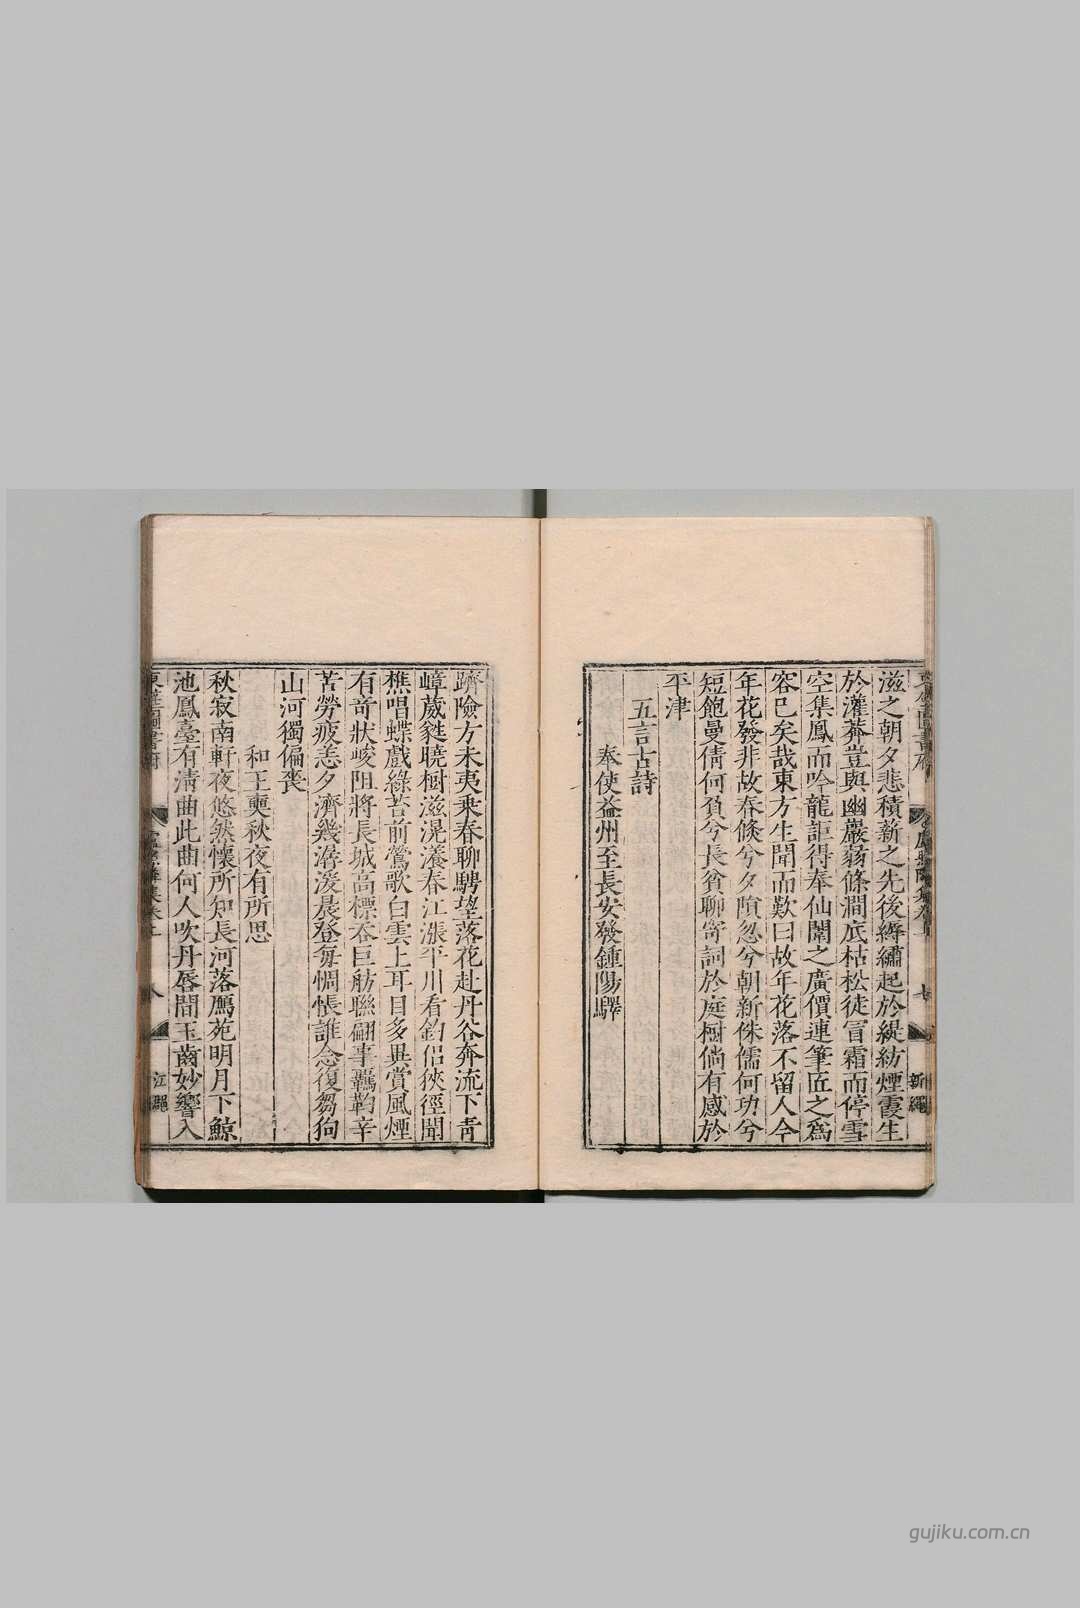 滋之朝夕悲積薪之先後縟繡起於緹紡煙霞生
於灌莽豈與幽巖蒻條澗底枯松徒冒霜而停雪
空集鳳而吟龍詎得奉仙闈之廣價連筆匠之為
容已矣哉東方生聞而歎曰故年花落不留人今
年花發非故春倐兮夕隕忽兮朝新侏儒何功兮
短飽曼倩何負兮長貧聊寄詞於庭樹倘有感於
平津
五言古詩
奉使益州至長安發鍾陽驛
躋險方未夷乘春聊騁望落花赴丹谷奔流下青
嶂葳甤曉樹滋滉瀁春江漲平川看釣侶狹徑聞
樵唱蝶戲綠苔前鶯歌白雲上耳目多異賞風煙
有竒狀峻阻將長城高標吞巨舫聯翩事羈靮辛
苦勞疲恙夕濟幾潺湲晨登每惆悵誰念復芻狗
山河獨偏喪
和王奭秋夜有所思
秋寂南軒夜悠然懷所知長河落鴈苑明月下鯨
池鳳臺有清曲此曲何人吹丹唇間玉齒妙響入
八
gujiku.com.cn